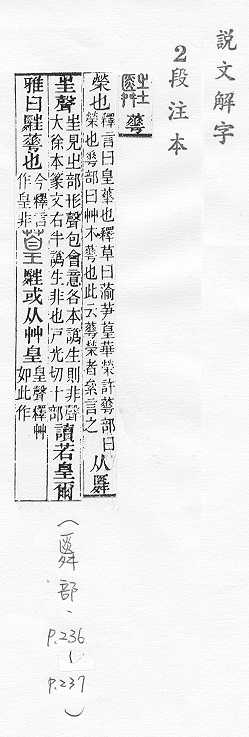 說文解字
2 段注本
𠌶
榮也 釋言曰皇華也釋草曰蕍芛葟華榮許𠌶部曰
榮也𠌶部曰艸木𠌶也此云𠌶榮者絫言之 从舜
㞷聲 㞷見㞢部形聲包會意各本譌生則非聲
大徐本篆文右半譌生非也戶光切十部 讀若皇爾
雅曰䑞𠌶也 今釋言
作皇非 葟 䑞或从艸皇 皇聲釋艸
如此作
(舜部、
P.236
~
P.237
)